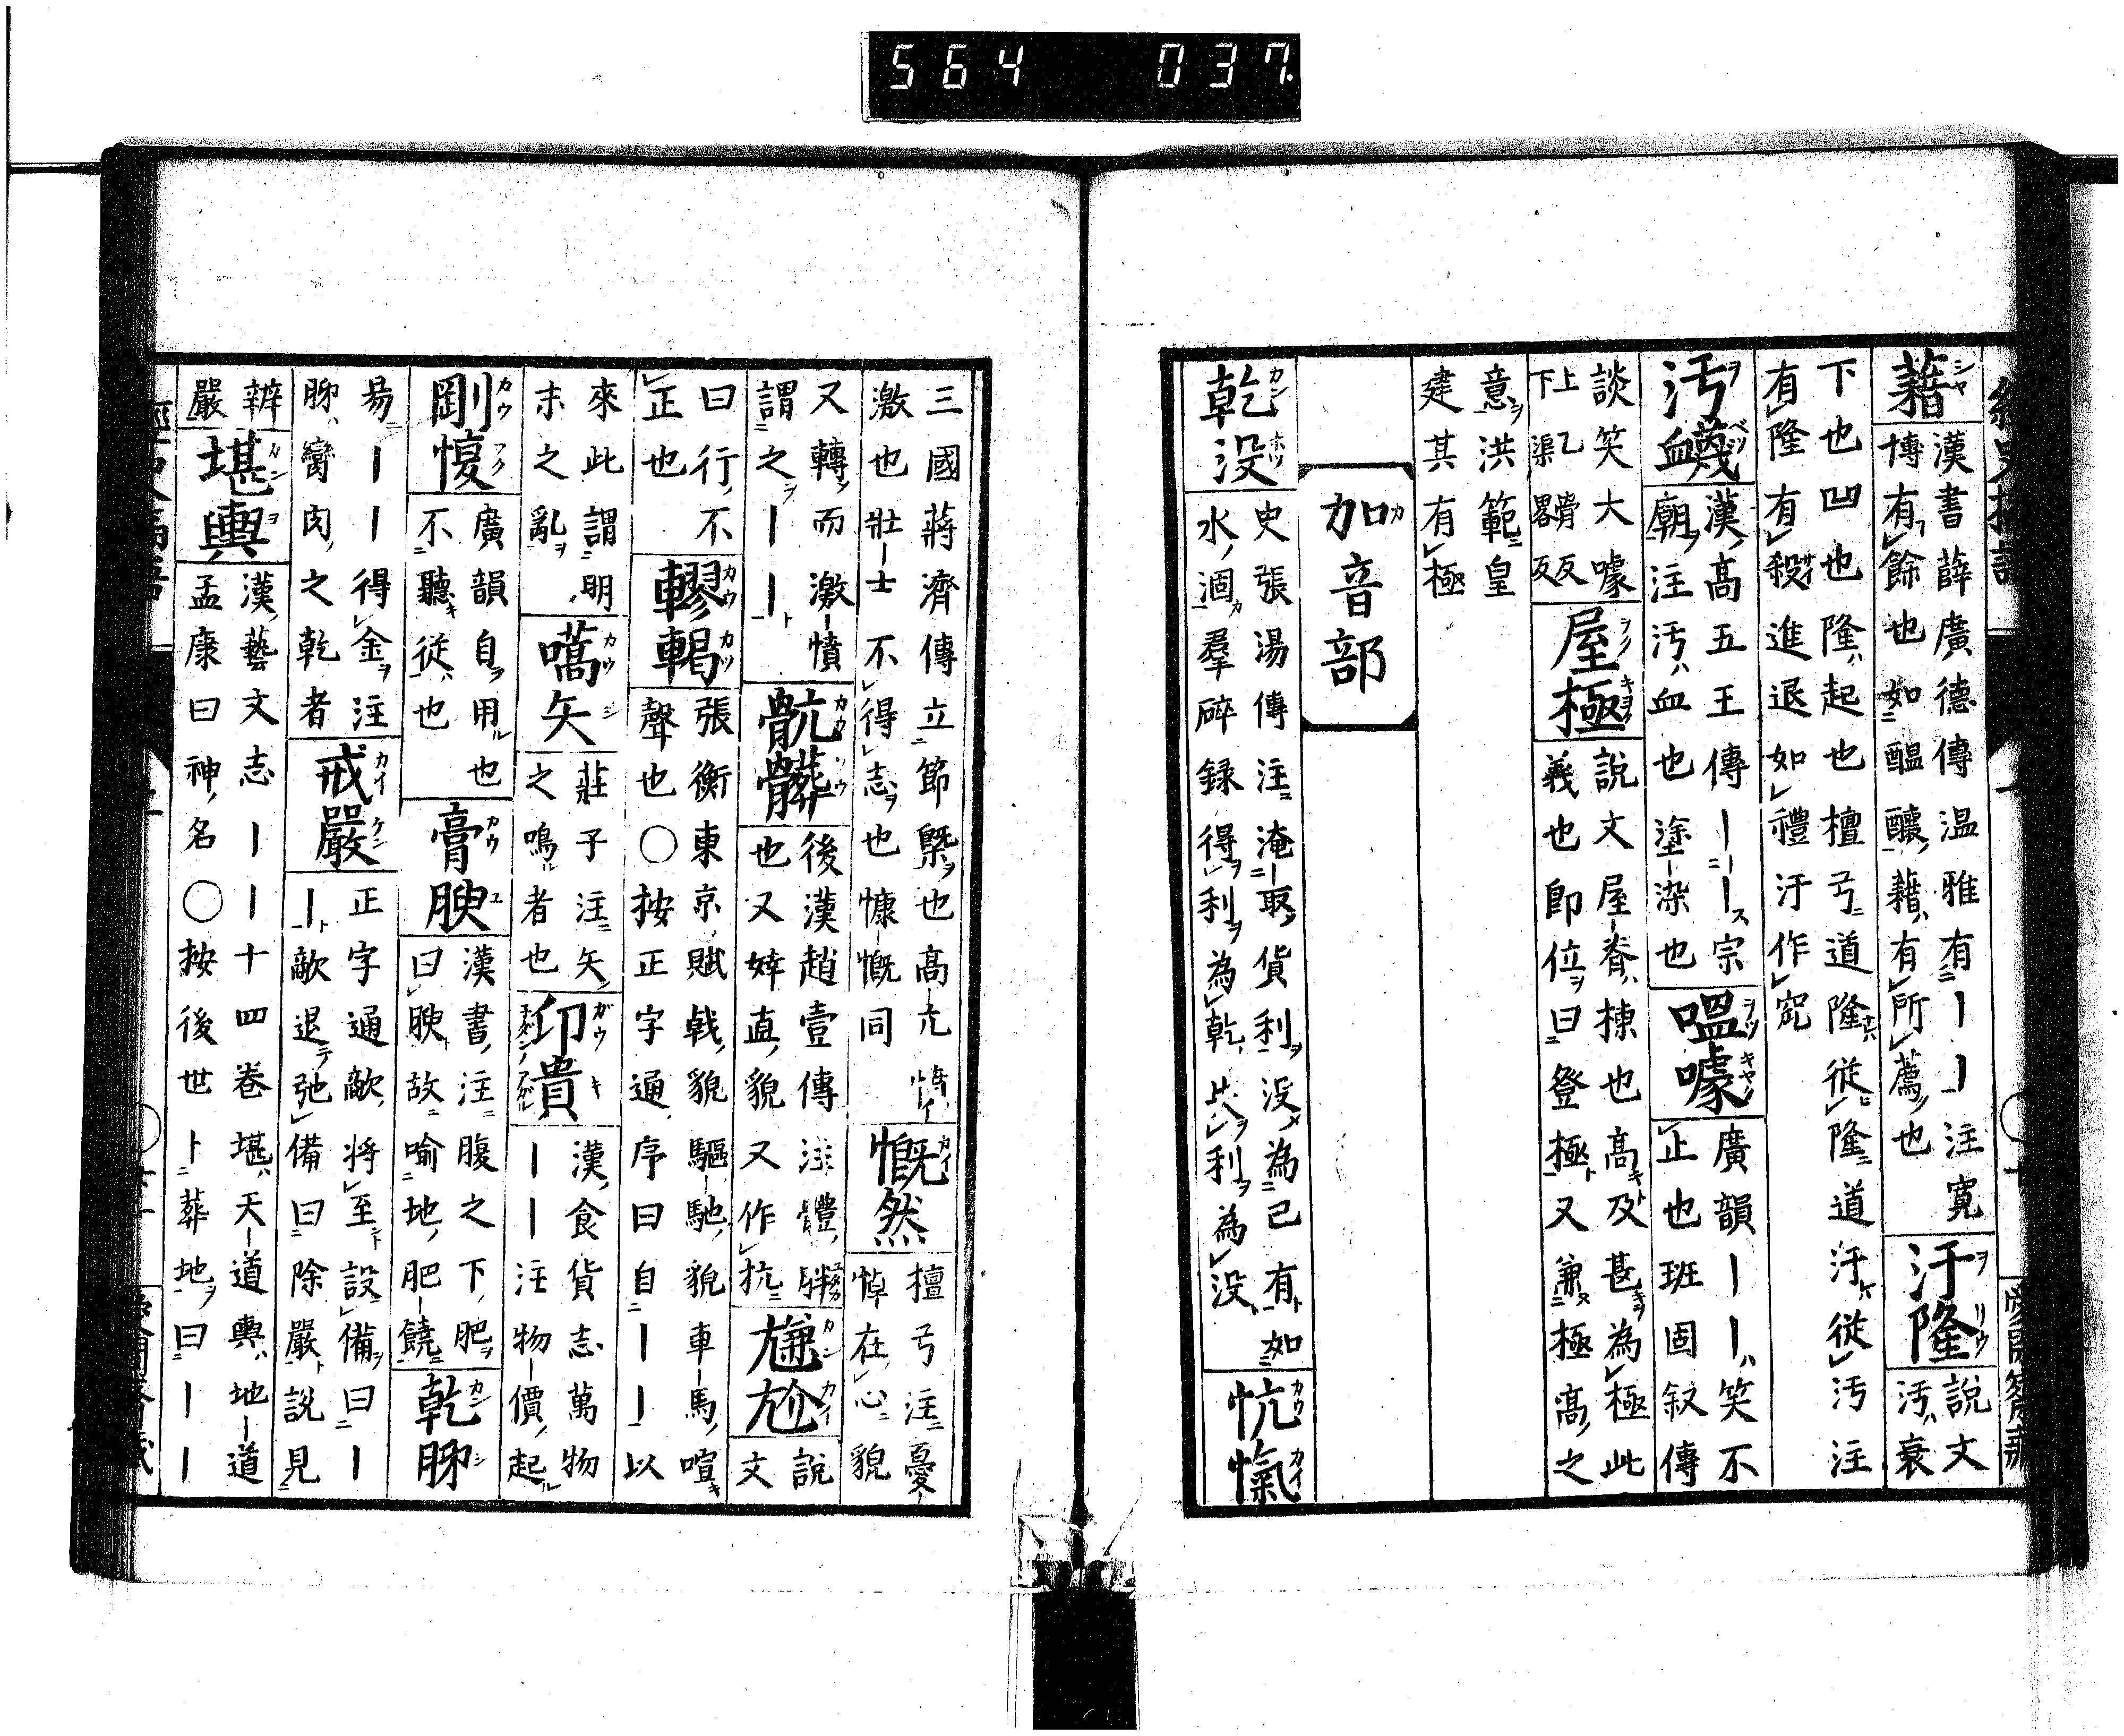 564 037.
藉
漢書薛廣德傳温雅有｜｜注寛
博有餘也如醞釀藉有所薦也
汙隆
説文
汚衰
下也凹也隆起也檀弓道隆従隆道汙従汚注
有隆有殺進退如禮汙作窊
汚衊
漢高五王傳｜｜宗
廟注汚血也塗染也
嗢噱
廣韻｜｜笑不
正也班固叙傳
談笑大噱
上乙骨反
下渠畧反
屋極
説文屋脊棟也高及甚為極此
義也即位曰登極又兼極高之
意洪範皇
建其有極
加音部
乾没
史張湯傳注淹取貨利没為己有如
水涸羣碎録得利為乾失利為没
忼愾
三國蔣濟傳立節槩也高亢憤
激也壯士不得志也慷慨同
慨然
檀弓注憂
悼在心貌
又轉而激憤
謂之｜｜
骯髒
後漢趙壹傳注體胖
也又婞直貌又作抗
尲尬
説
文
曰行不
正也
轇轕
張衡東京賦戟貌驅馳貌車馬喧
聲也〇按正字通序曰自｜｜以
來此謂明
末之亂
嚆矢
莊子注矢
之鳴者也
卬貴
漢食貨志萬物
｜｜注物價起
剛愎
廣韻自用也
不聽従也
膏腴
漢書注腹之下肥
曰腴故喻地肥饒
乾胏
易｜｜得金注
胏臠肉之乾者
戒嚴
正字通敵将至設備曰｜
｜敵退弛備曰除嚴説見
辧
嚴
堪輿
漢藝文志｜｜十四巻堪天道輿地道
孟康曰神名〇按後世卜葬地曰｜｜